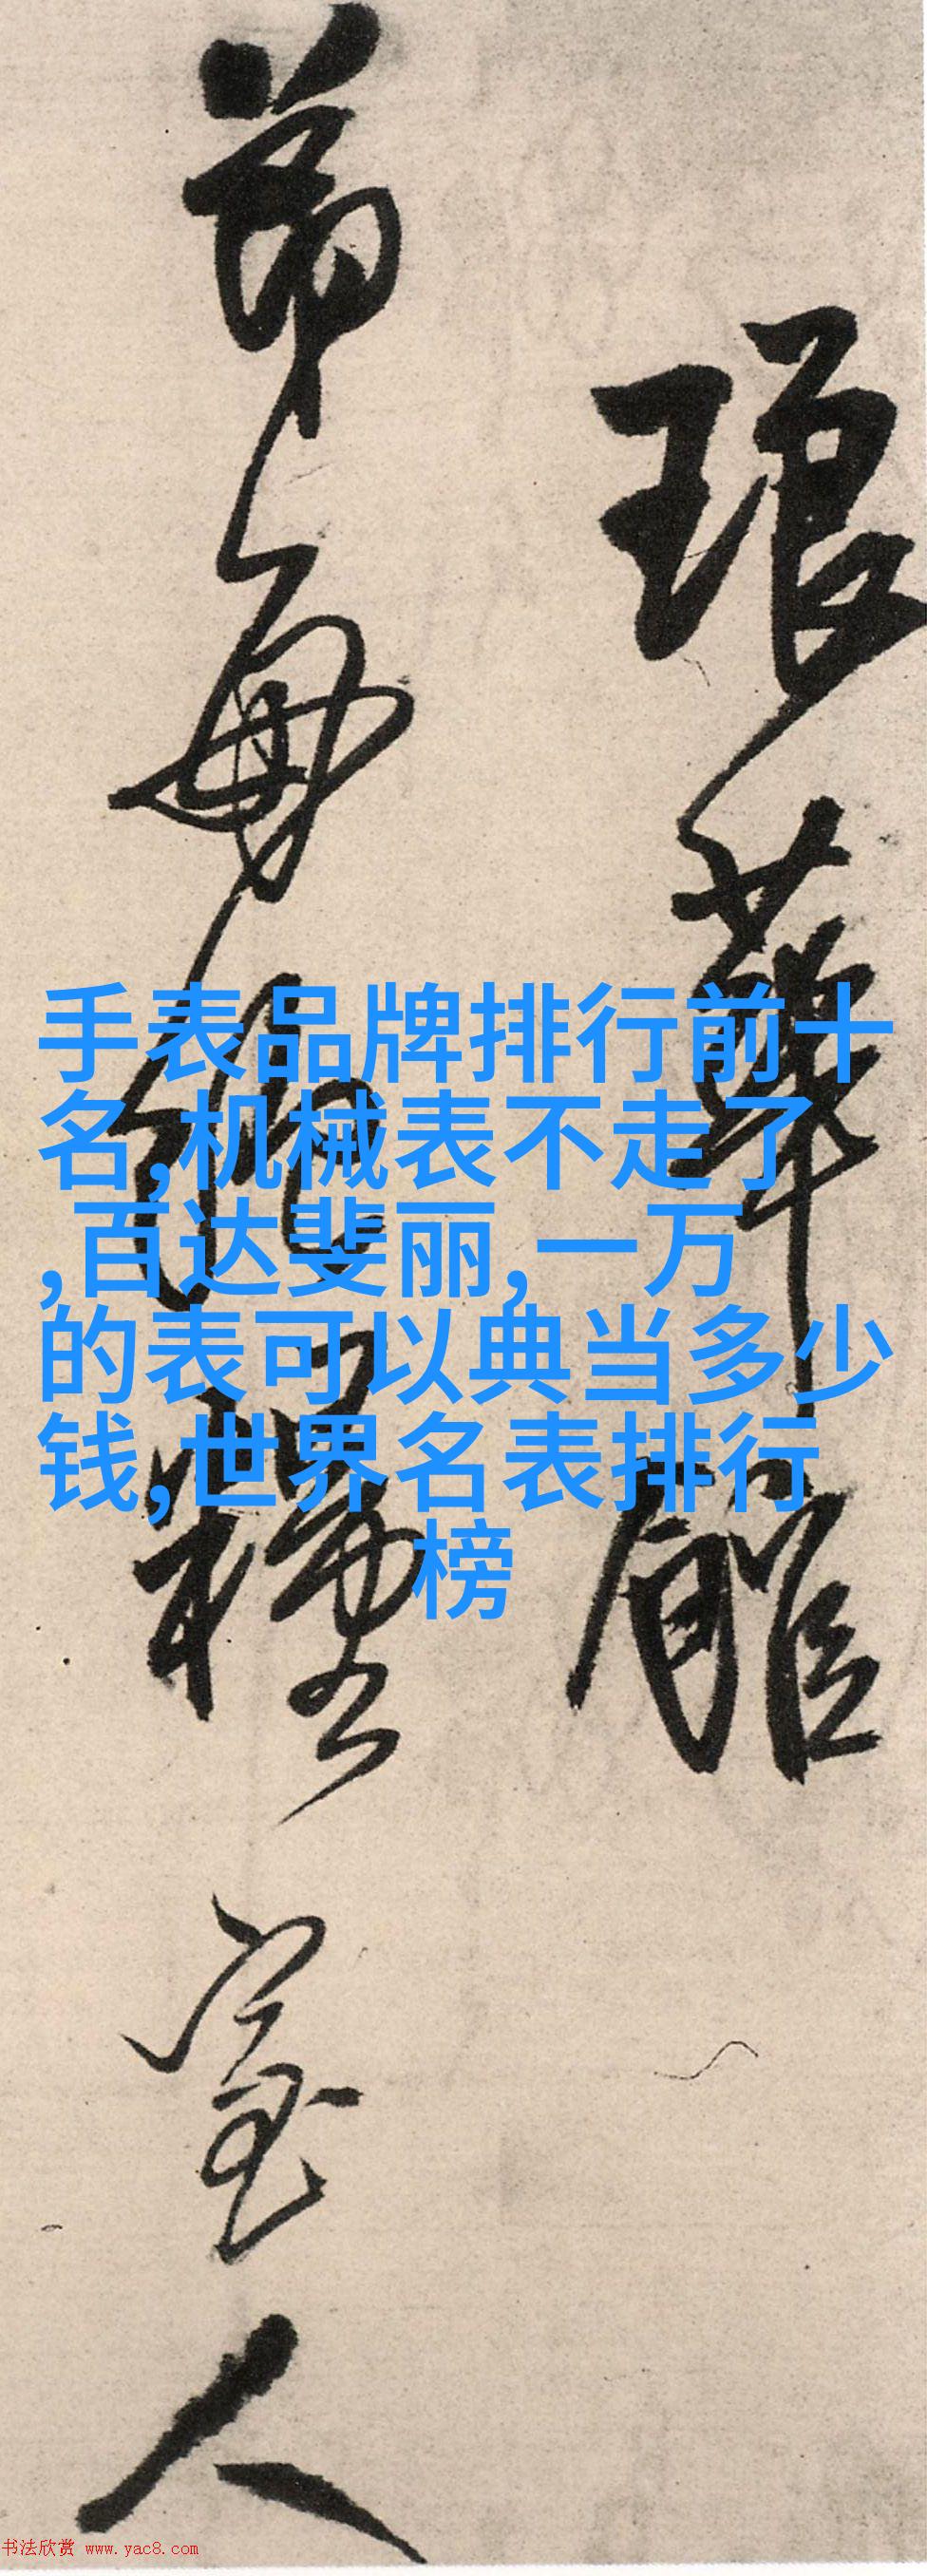 琅華館
人
手表品牌排行前十
名,机械表不走了
,百达斐丽,一万
的表可以典当多少
钱,世界名表排行
榜
书法欣赏 www.yac8.com